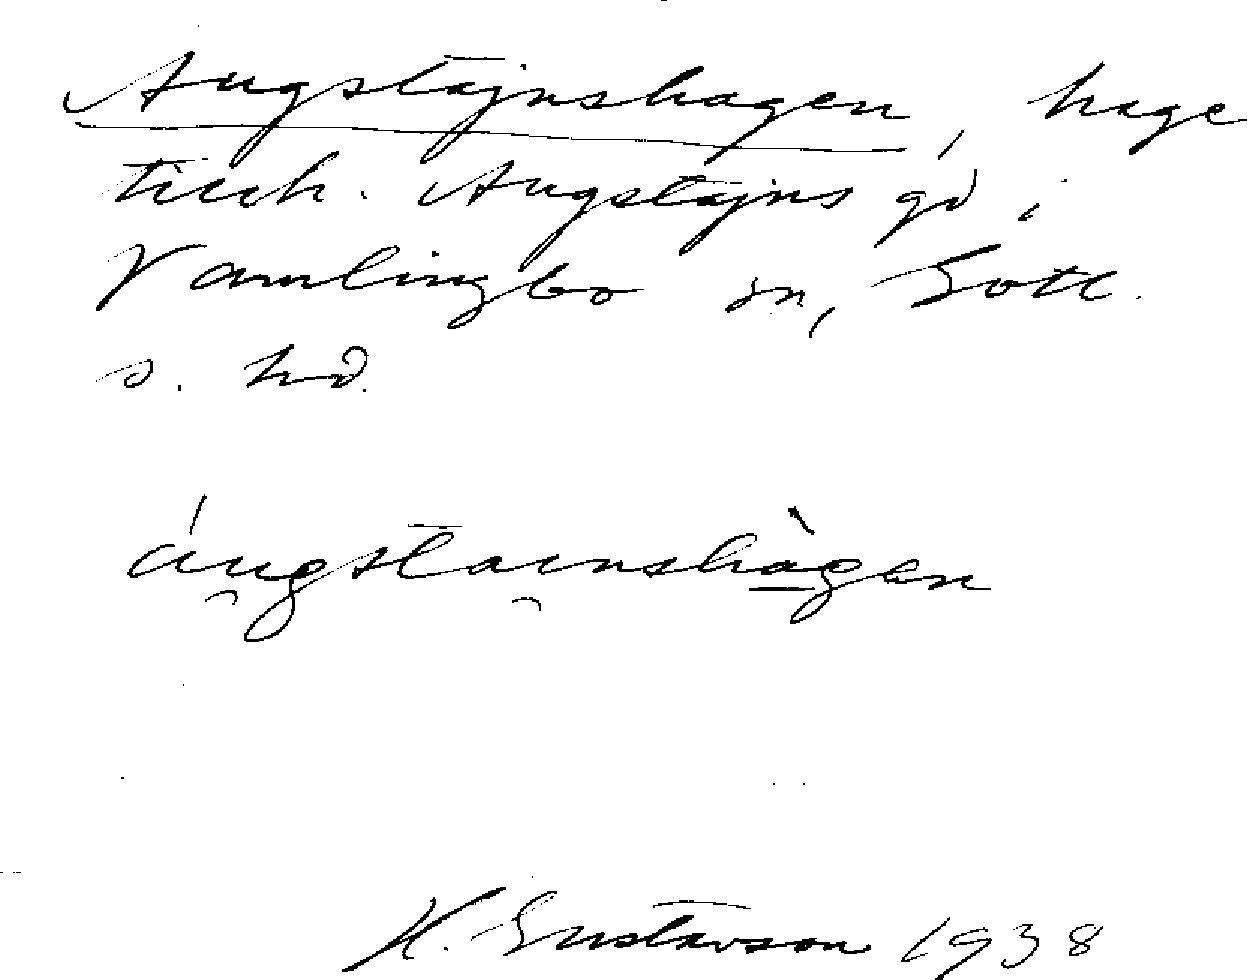 Augstajnshagen, hage
tillh. Augstajns gd, i
Vamlingbo sn, Gotl.
s. hd.
áu̯gstai̯nshà̱gen
H. Gustavson 1938